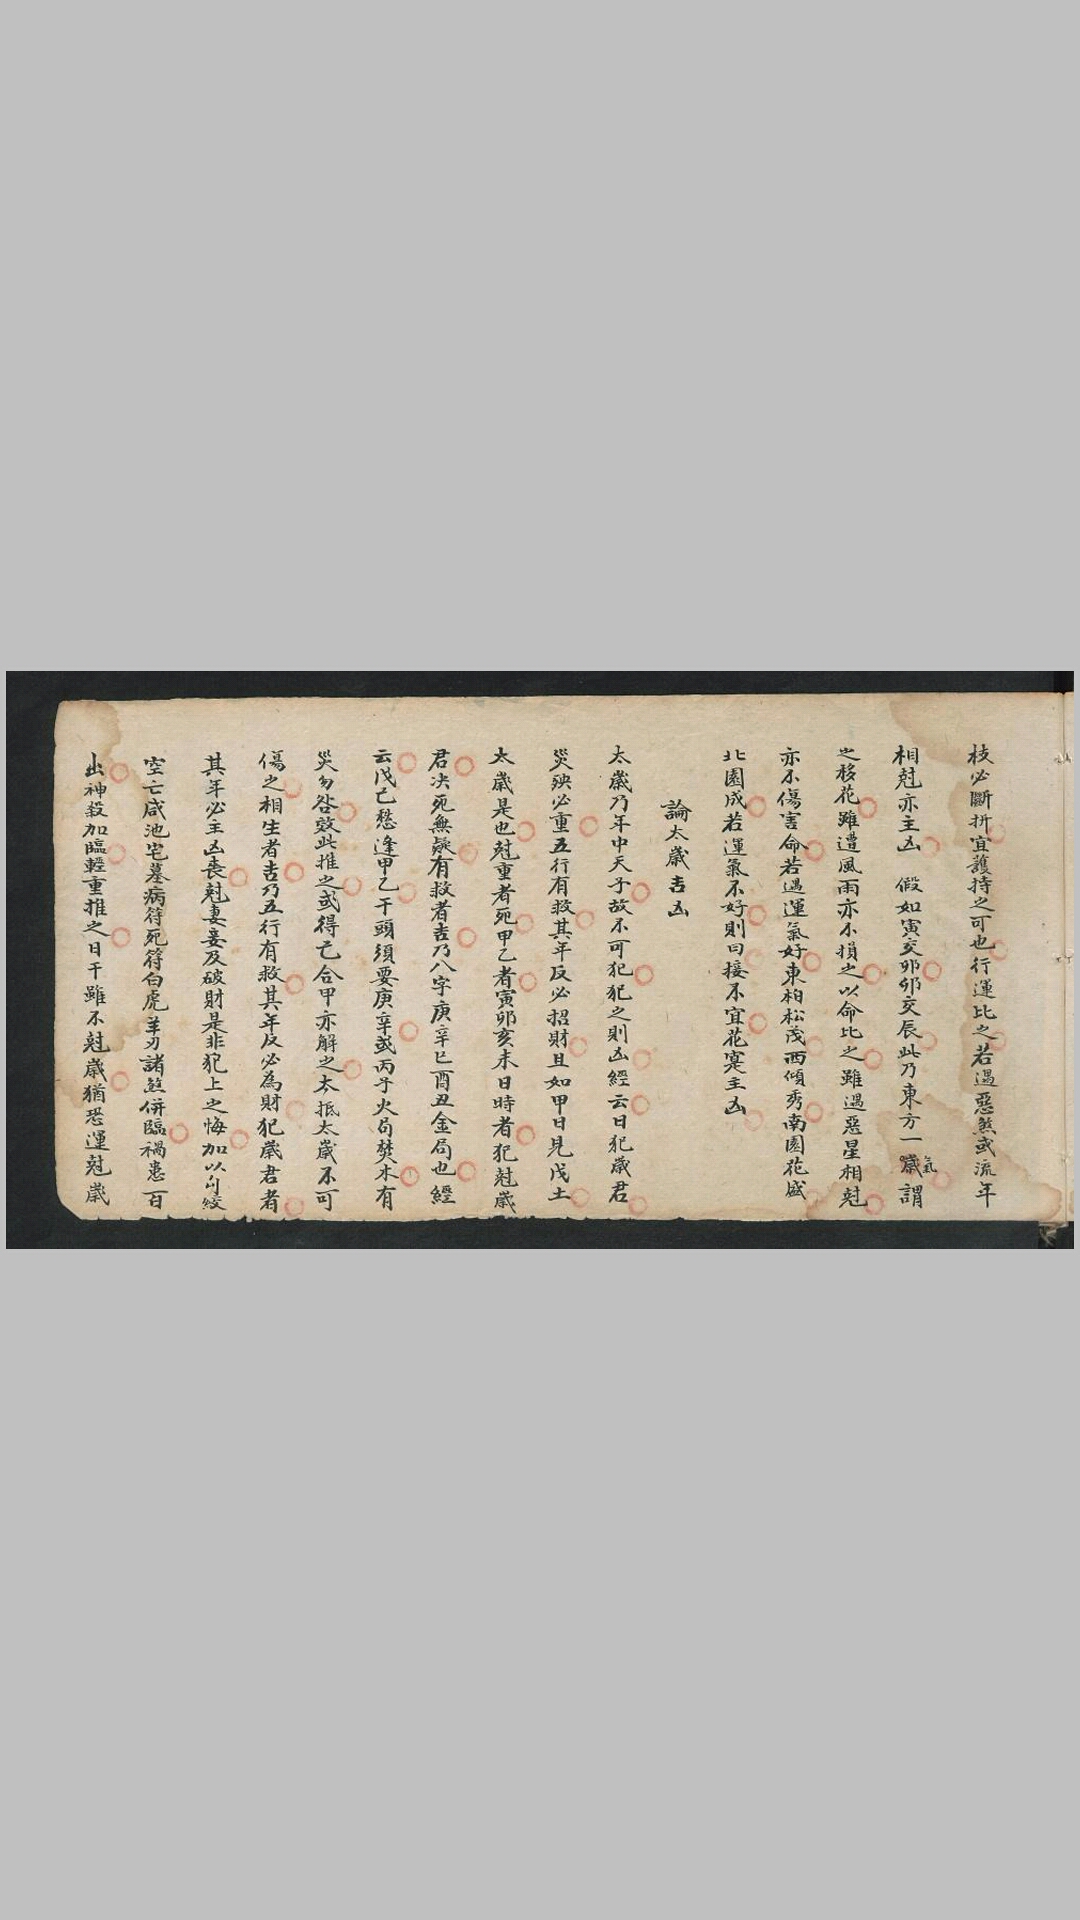 枝必斷折宜護持之可也行運比之若遇惡煞或流年
相尅亦主凶 假如寅交卯卯交辰此乃東方一氣謂
之移花雖遭風雨亦不損之以命比之雖遇惡星相尅
亦不傷害命若遇運氣好東柏松茂西傾秀南園花盛
北園成若運氣不好則曰接不宜花寔主凶
論太歲吉凶
太歲乃年中天子故不可犯犯之則凶經云日犯歲君
災殃必重五行有救其年反必招財且如甲日見戊土
太歲是也尅重者死甲乙者寅卯亥未日時者犯尅歲
君决死無疑有救者吉乃八字庚辛巳酉丑金局也經
云戊己愁逢甲乙干頭須要庚辛或丙子火局焚木有
災勿咎效此推之或得己合甲亦解之太抵太歲不可
傷之相生者吉乃五行有救其年反必為財犯歲君者
其年必主凶喪尅妻妾及破財是非犯上之悔加以勾絞
空亡咸池宅墓病符死符白虎羊刃諸煞併臨禍患百
出神殺加臨輕重推之日干雖不尅歲猶恐運尅歲